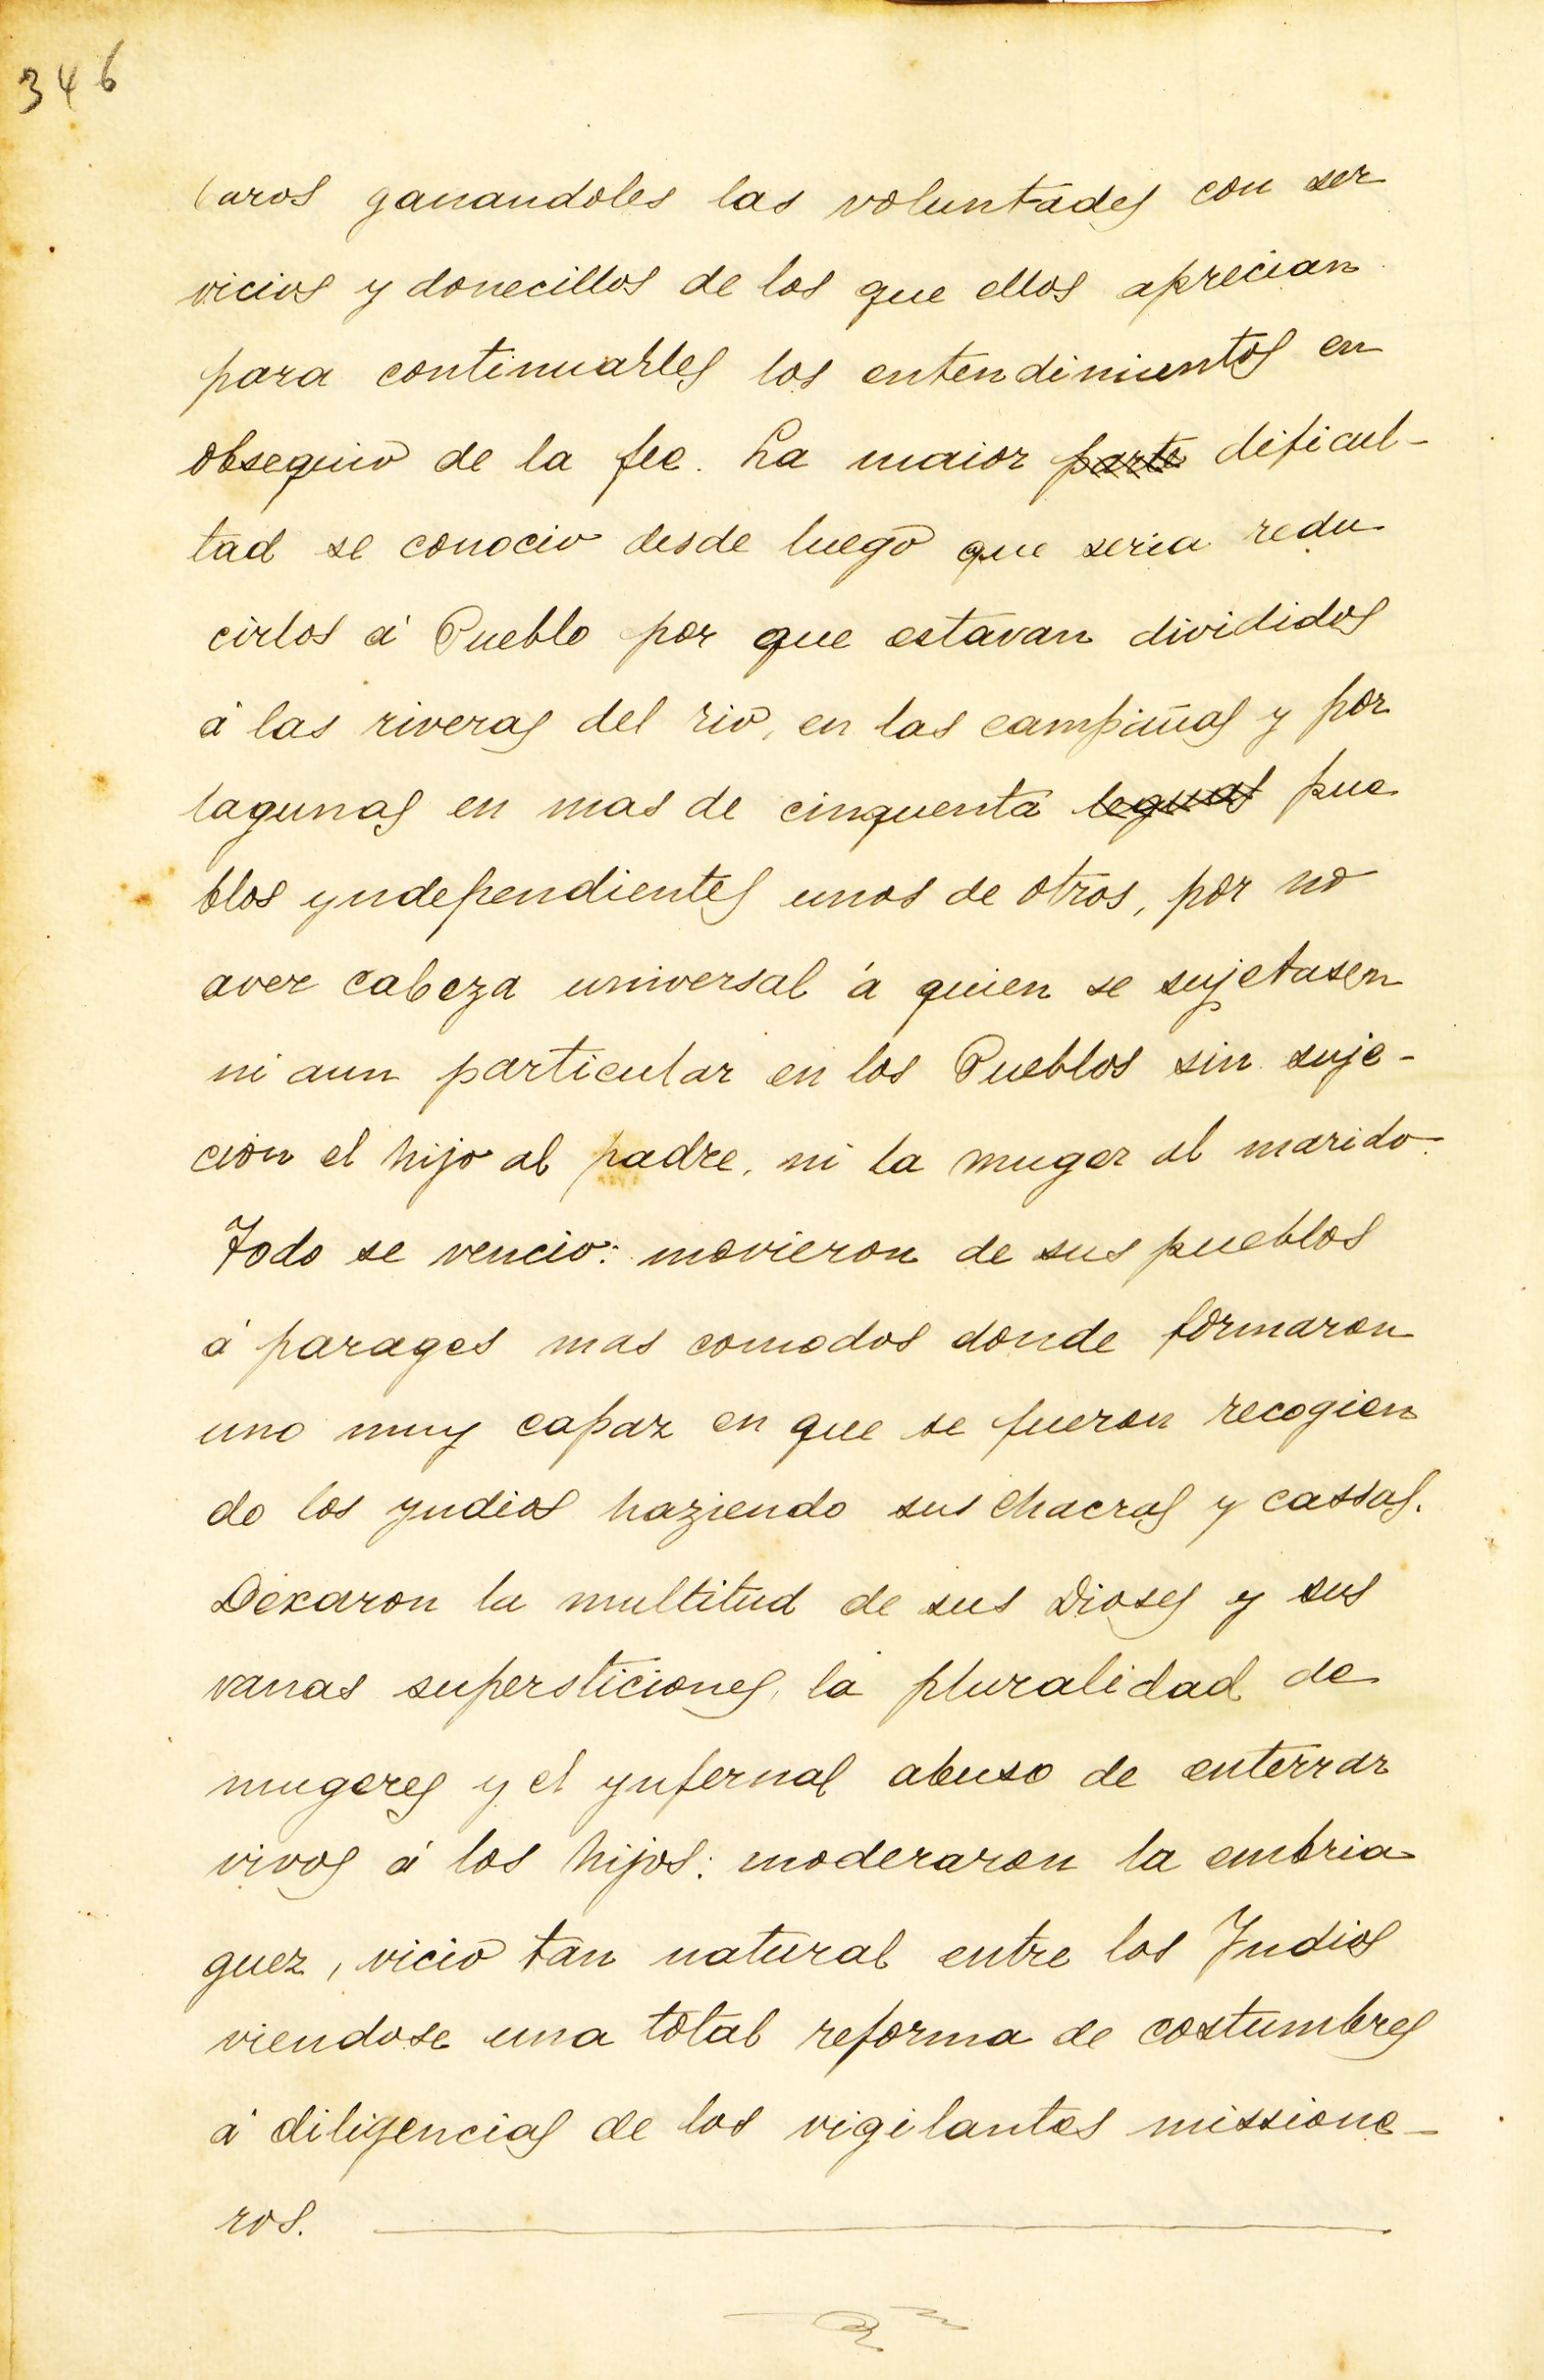 346
baros ganandoles las voluntades con ser
vicios y donecillos de los que ellos aprecian
para continuarles los entendimientos en
obsequio de la fee. La maior parte dificul-
tad se conocio desde luego que seria redu
cirlos á Pueblo por que estavan divididos
á las riveras del rio, en las campiñas y por
lagunas en mas de cinquenta leguas pue
blos yndependientes unos de otros, por no
aver cabeza universal á quien se sujetasen
ni aun particular en los Pueblos sin suje-
cion el hijo al padre, ni la muger al marido.
Todo se vencio: movieron de sus pueblos
á parages mas comodos donde formaron
uno muy capaz en que se fueron recogien
do los yndios haziendo sus chacras y cassas.
Dexaron la multitud de sus Dioses y sus
vanas supersticiones, la pluralidad de
mugeres y el ynfernal abuso de enterrar
vivos á los hijos: moderaron la embria
guez, vicio tan natural entre los Indios
viendose una total reforma de costumbres
á diligencias de los vigilantes missione-
ros.